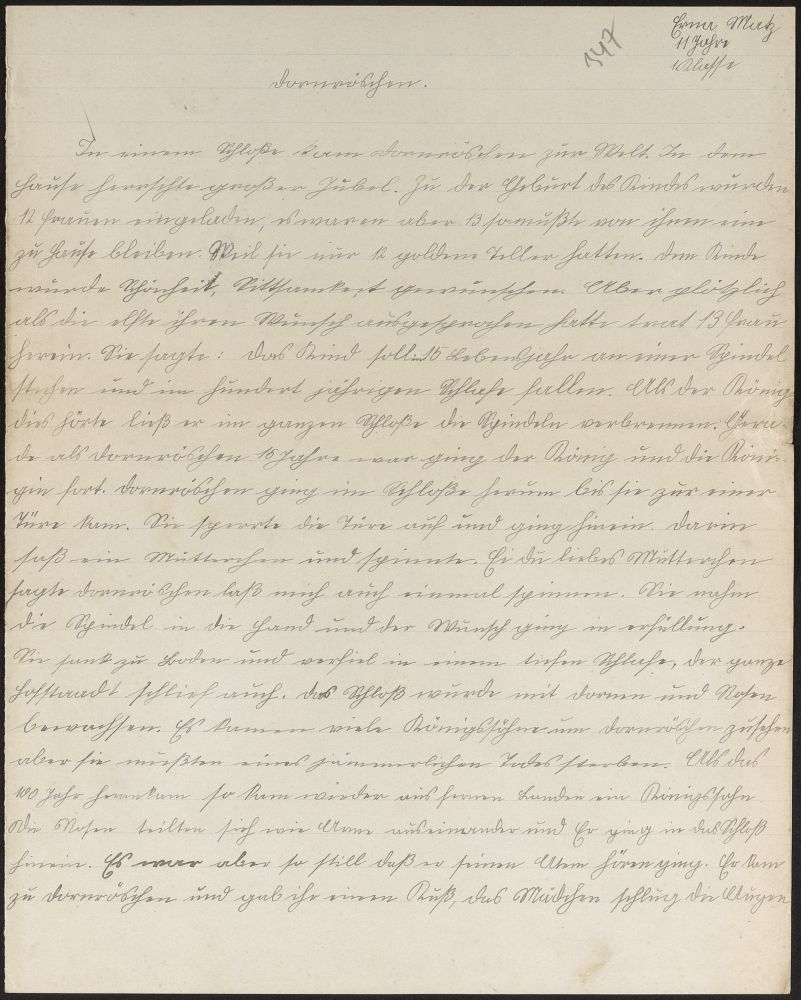 Erna Matz
11 Jahre
1 Klasse
347
Dornröschen.
In einem Schloße kam Dornröschen zur Welt. In dem
Hause herrschte großer Jubel. Zu der Geburt des Kindes wurden
12 Frauen eingeladen, es waren aber 13 so mußte von ihnen eine
zu Hause bleiben. Weil sie nur 12 goldene Teller hatten. Dem Kinde
wurde Schönheit, Sittsamkeit gewünschen. Aber plötzlich
als die elfte ihren Wunsch ausgesprochen hatte trat 13 Frau
herein. Sie sagte: Das Kind soll in 15 Lebensjahr an einer Spindel
stechen und im hundert jährigen Schlafe fallen. Als der König
dies hörte ließ er im ganzen Schloße die Spindeln verbrennen. Gera-
de als Dornröschen 15 Jahre war ging der König und die Köni-
gin fort. Dornröschen ging im Schloße herum bis sie zur einer
Türe kam. Sie sperrte die Türe auf und ging hinein. Darin
saß ein Mütterchen und spinnte. Ei du liebes Mütterchen
sagte Dornröschen laß mich auch einmal spinnen. Sie nahm
die Spindel in die Hand und der Wunsch ging in erfüllung.
Sie sank zu Boden und verfiel in einem tiefen Schlafe, der ganze
Hofstaadt schlief auch. Das Schloß wurde mit Dornen und Rosen
bewachsen. Es kamen viele Königssöhne um Dornröschen zusehen
aber sie mußten eines jämmerlichen Todes sterben. Als das
100 Jahr herankam so kam wieder aus fernen Landen ein Königssohn
Die Rosen teilten sich wie Arme auseinander und Er ging in das Schloß
hinein. Es war aber so still daß er seinen Atem hören ging. Er kam
zu Dornröschen und gab ihr einen Kuß, das Mädchen schlug die Augen